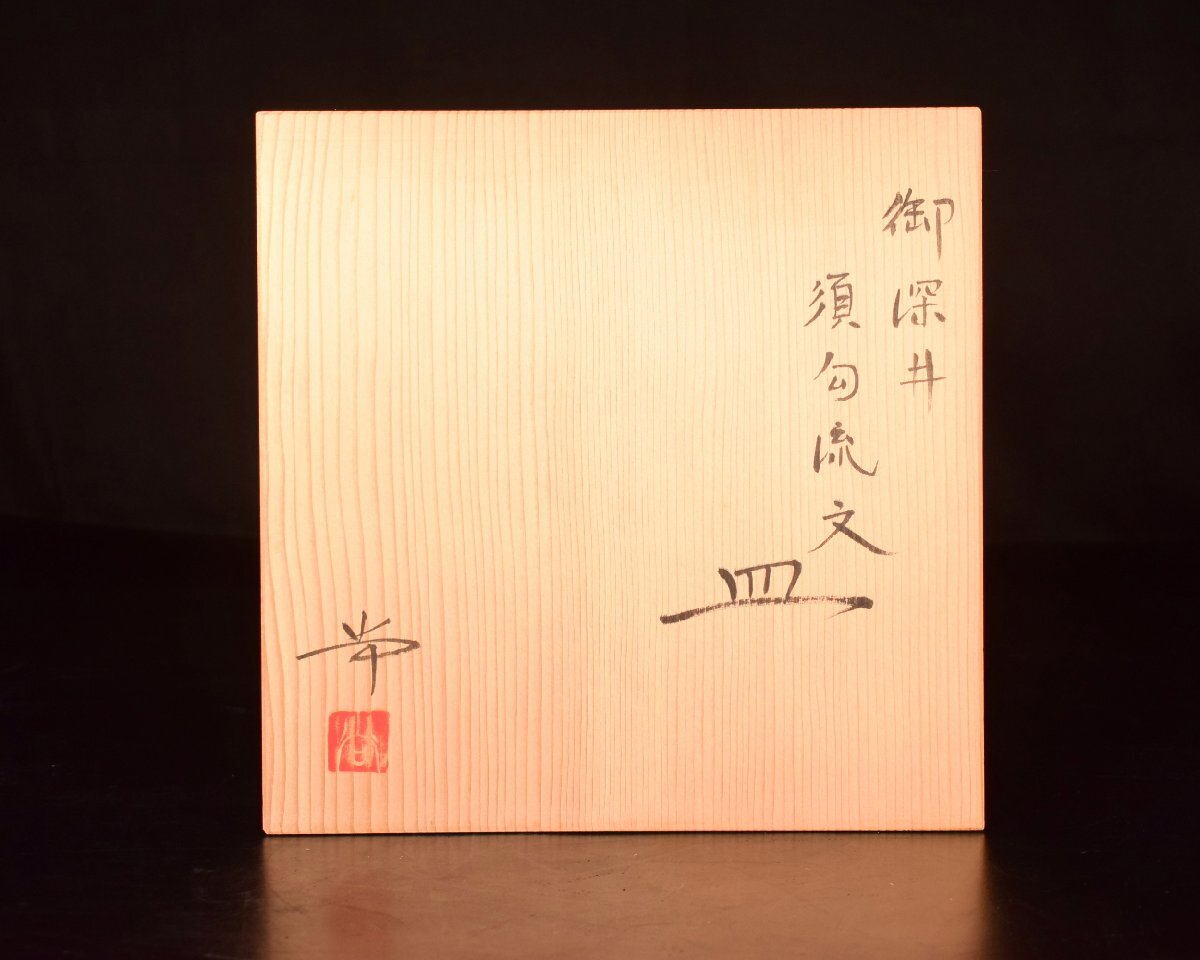 御深井
須勾流文
皿